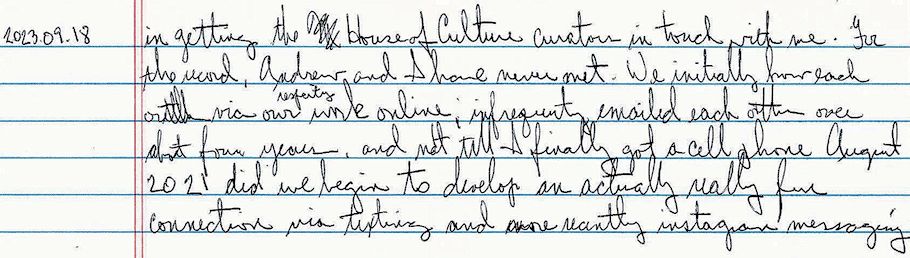 2023.09.18
in getting the House of Culture curators in touch with me. For
the record, Andrew and I have never met. We initially know each
other via our work online, infrequently emailed each other over
about four years, and not till I finally got a cell phone August
2021 did we begin to develop an actually really fun
connection via texting and more recently instagram messaging